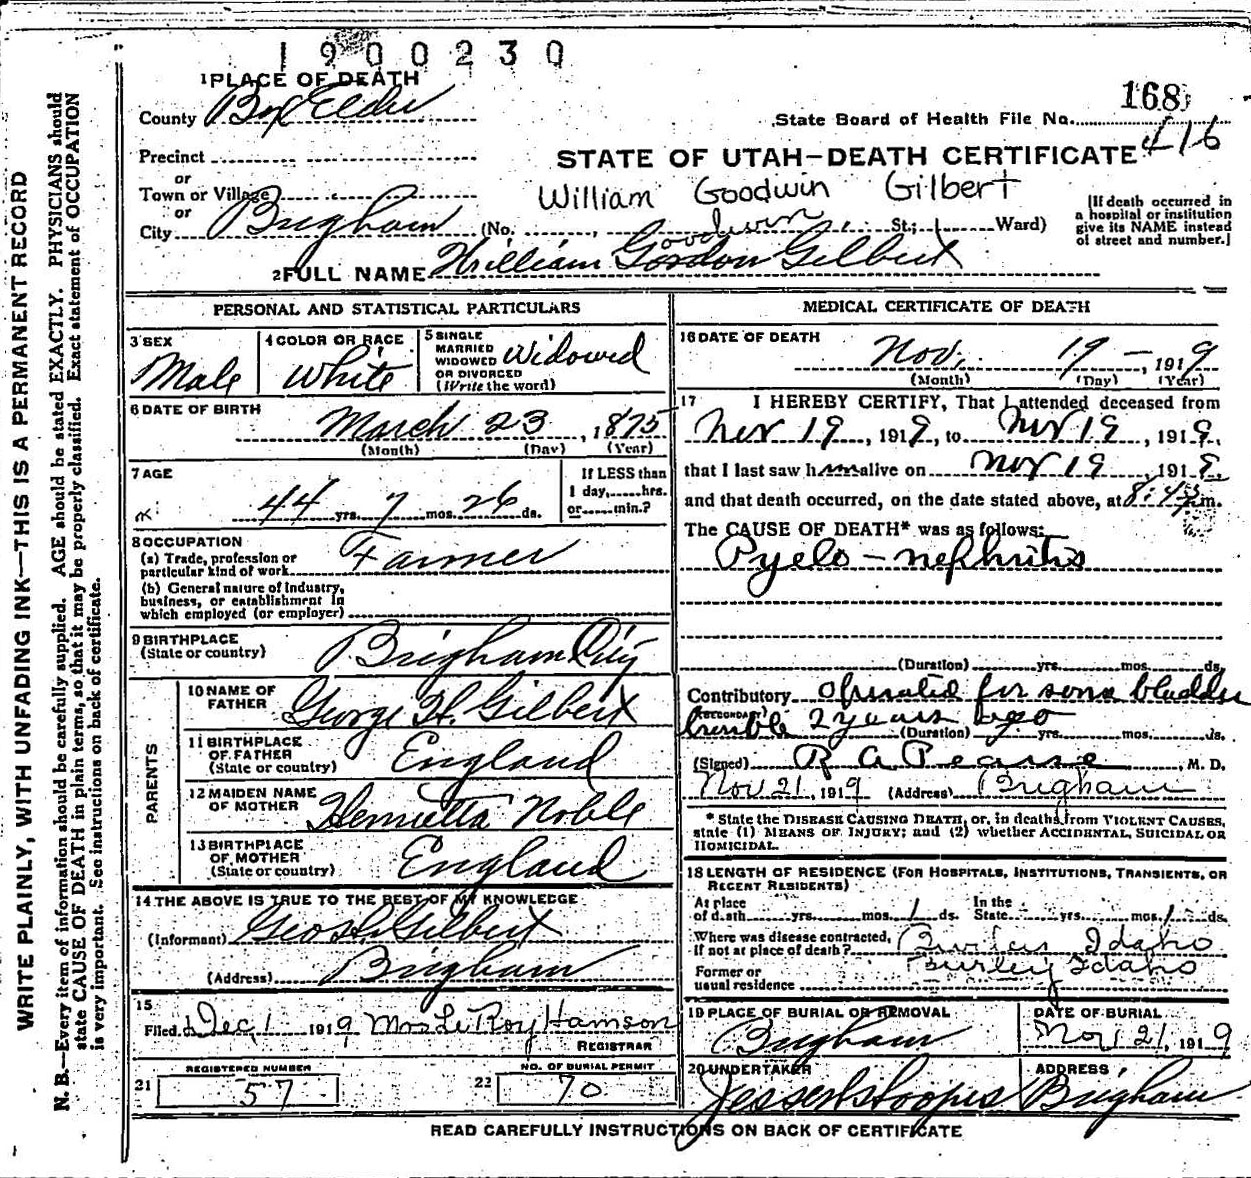 1900230
1 PLACE OF DEATH
168
County Box Elder
State Board of Health File No. 416
Precinct
or
STATE OF UTAH—DEATH CERTIFICATE
Town or Village
or
William Goodwin Gilbert
City Brigham (No. , St.; 1 Ward)
[If death occurred in
a hospital or institution
give its NAME instead
of street and number.]
Goodwin
2 FULL NAME William Gordon Gilbert
PERSONAL AND STATISTICAL PARTICULARS
3 SEX
Male
4 COLOR OR RACE
White
5 SINGLE
MARRIED
WIDOWED
OR DIVORCED
(Write the word)
Widowed
6 DATE OF BIRTH
March 23, 1875
(Month) (Day) (Year)
7 AGE
44 yrs. 7 mos. 26 ds.
If LESS than
1 day, hrs.
or min.?
8 OCCUPATION
(a) Trade, profession or
particular kind of work Farmer
(b) General nature of industry,
business, or establishment in
which employed (or employer)
9 BIRTHPLACE
(State or country) Brigham City
PARENTS
10 NAME OF
FATHER George H. Gilbert
11 BIRTHPLACE
OF FATHER
(State or country) England
12 MAIDEN NAME
OF MOTHER Henrietta Noble
13 BIRTHPLACE
OF MOTHER
(State or country) England
14 THE ABOVE IS TRUE TO THE BEST OF MY KNOWLEDGE
(Informant) Geo H. Gilbert
(Address) Brigham
15
Filed Dec 1 1919 Mrs Le Roy Hamson
REGISTRAR
21 REGISTERED NUMBER
57
22 NO. OF BURIAL PERMIT
70
MEDICAL CERTIFICATE OF DEATH
16 DATE OF DEATH
Nov. 19 —, 1919
(Month) (Day) (Year)
17 I HEREBY CERTIFY, That I attended deceased from
Nov 19, 1919, to Nov 19, 1919,
that I last saw him alive on Nov 19, 1919
and that death occurred, on the date stated above, at 8:45 m.
The CAUSE OF DEATH* was as follows:
Pyelo-nephritis
(Duration) yrs. mos. ds.
Contributory Operated for some bladder
(SECONDARY) trouble 2 years ago
(Duration) yrs. mos. ds.
(Signed) R A Pearse, M. D.
Nov 21, 1919 (Address) Brigham
* State the DISEASE CAUSING DEATH, or, in deaths from VIOLENT CAUSES,
state (1) MEANS OF INJURY; and (2) whether ACCIDENTAL, SUICIDAL OR
HOMICIDAL.
18 LENGTH OF RESIDENCE (FOR HOSPITALS, INSTITUTIONS, TRANSIENTS, OR
RECENT RESIDENTS)
At place
of death yrs. mos. 1 ds.
In the
State yrs. mos. 1 ds.
Where was disease contracted,
if not at place of death? Idaho
Former or
usual residence Burley Idaho
19 PLACE OF BURIAL OR REMOVAL
Brigham
DATE OF BURIAL
Nov 21, 1919
20 UNDERTAKER
ADDRESS
Brigham
READ CAREFULLY INSTRUCTIONS ON BACK OF CERTIFICATE
WRITE PLAINLY, WITH UNFADING INK—THIS IS A PERMANENT RECORD
N. B.—Every item of information should be carefully supplied. AGE should be stated EXACTLY. PHYSICIANS should
state CAUSE OF DEATH in plain terms, so that it may be properly classified. Exact statement of OCCUPATION
is very important. See instructions on back of certificate.